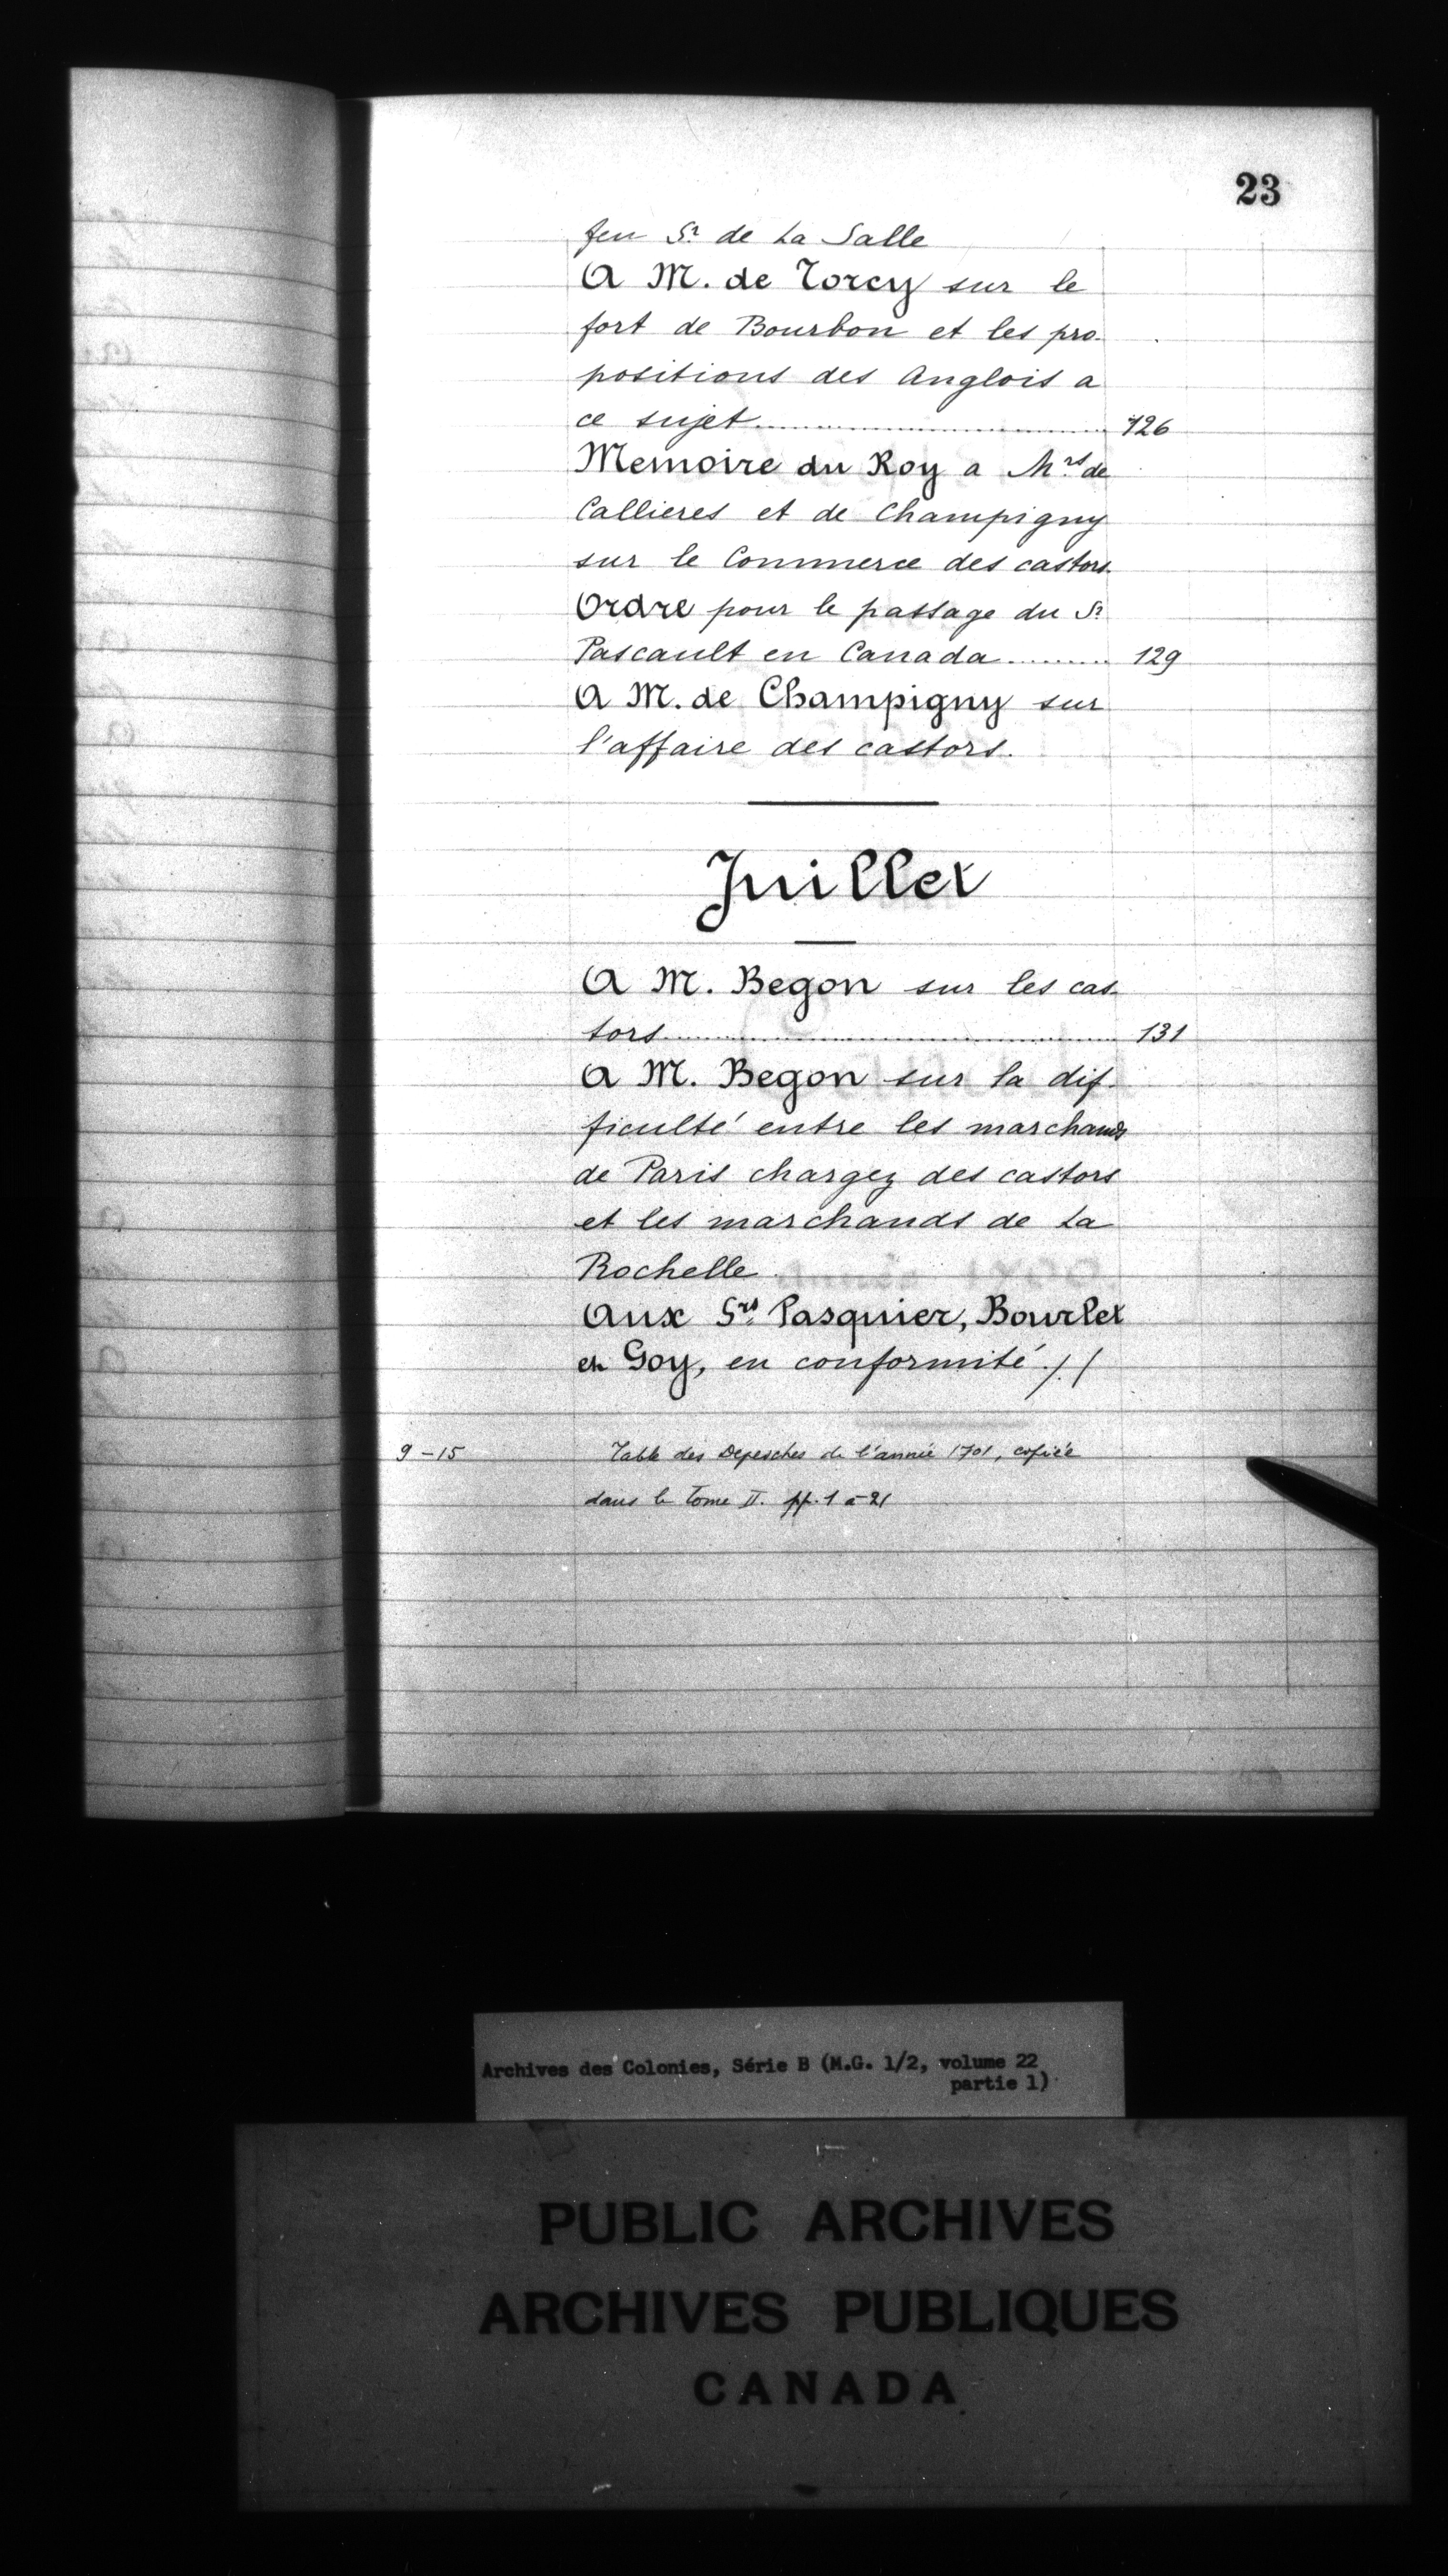 23
feu Sr. de La Salle
A M. de Torcy sur le
fort de Bourbon et les pro-
positions des Anglois a
ce sujet.............................. 126
Memoire du Roy a Mrs. de
Callieres et de Champigny
sur le Commerce des castors.
Ordre pour le passage du Sr.
Pascault en Canada.......... 129
A M. de Champigny sur
l'affaire des castors.
Juillet
A M. Begon sur les cas-
tors.............................. 131
A M. Begon sur la dif-
ficulté entre les marchands
de Paris chargez des castors
et les marchands de La
Rochelle.
Aux Srs. Pasquier, Bourlet
et Goy, en conformité ./. /
9-15 Table des Depesches de l'année 1701, copiée
dans le Tome II. pp. 1 à 21
Archives des Colonies, Série B (M.G. 1/2, volume 22
partie 1)
PUBLIC ARCHIVES
ARCHIVES PUBLIQUES
CANADA